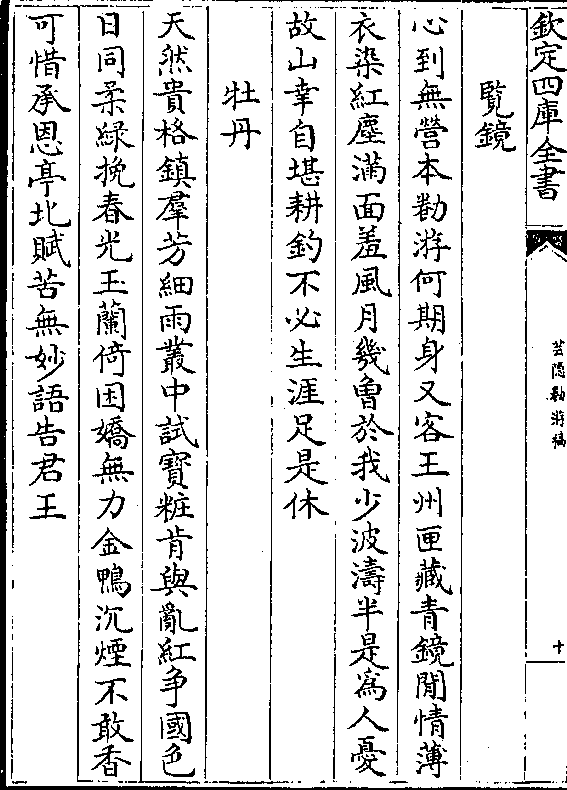 欽定四庫全書
芸隠勌游稿
十
覧鏡
心到無營本勌游何期身又客王州匣藏青鏡閒情薄
衣染紅塵滿面羞風月幾曾於我少波濤半是為人憂
故山幸自堪耕釣不必生涯足是休
牡丹
天然貴格鎮羣芳細雨叢中試寳粧肯與亂紅争國色
日同柔緑挽春光玉蘭倚困嬌無力金鴨沉煙不敢香
可惜承恩亭北賦苦無妙語告君王